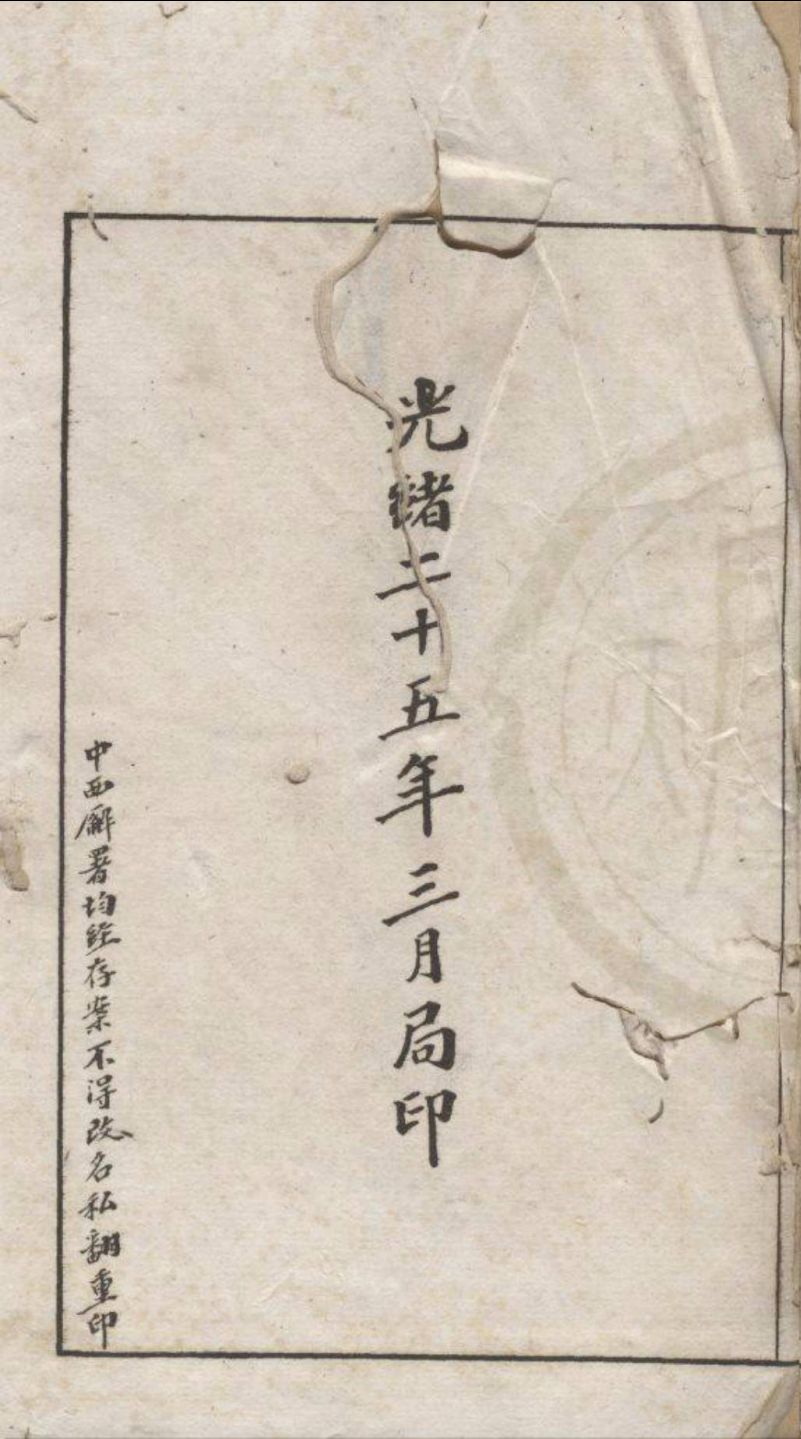 光緒二十五年三月局印
中西廨署均經存案不得改名私翻重印